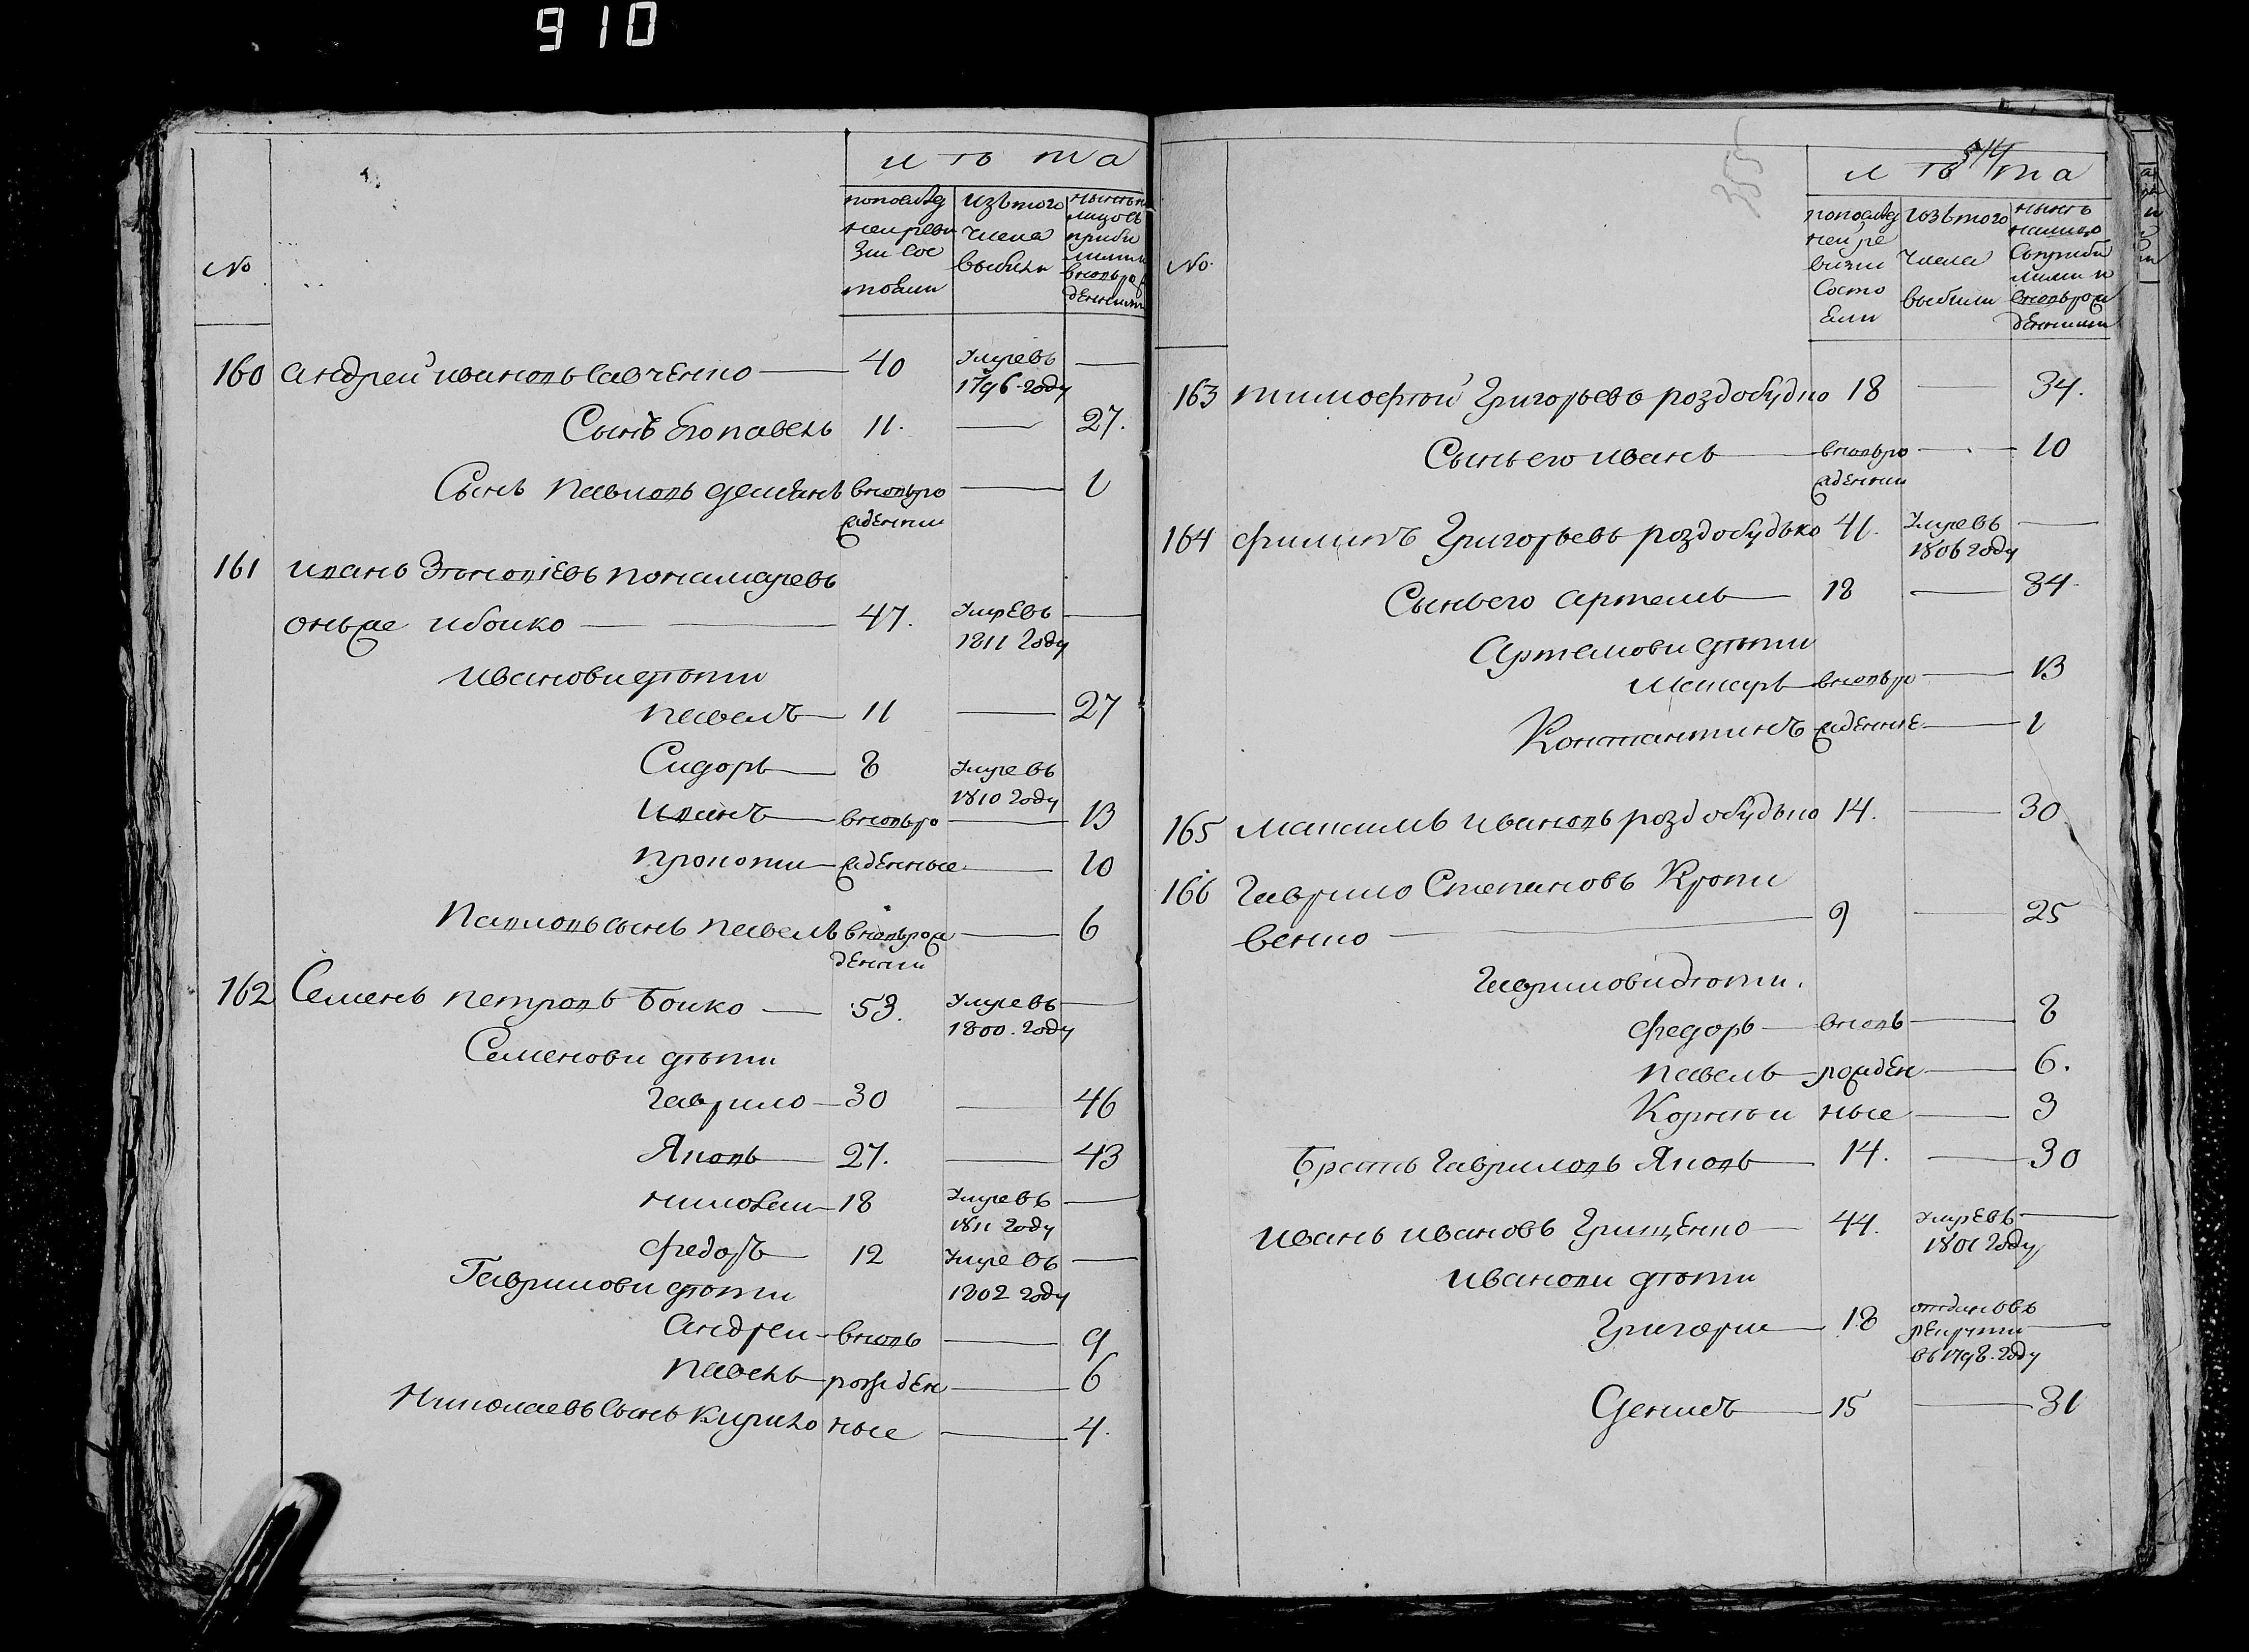 910
лѣта
No
по послѣд
ней реви
зии сос
тояли
изъ того
числа
выбыли
160 Андрей Ивановъ Савченко — 40 умре въ —
1796 году
Сынъ его Павелъ 11. — 27.
Сынъ Павловъ Демянъ вновьро — 1
жденни
161 Иванъ пономаревъ
онъже и Бойко — 47. умре въ —
1811 году
Ивановы дѣти
Павелъ — 11 — 27
Сидоръ — 8 умре въ
1810 году
Иванъ — вновьро — 13
Прокопи — жденные — 10
Павловъ сынъ Павелъ вновьрож — 6
денни
162 Семенъ Петровъ Бойко — 53. умре въ —
1800. году
Семенови дѣти
Гаврило — 30 — 46
Яковъ — 27. — 43
Николаи — 18 умре въ —
1811 году
Федоръ — 12 умре въ —
1802 году
Гаврилови дѣти
Андреи — вновь — 9
Павелъ — рожден — 6
Николаевъ сынъ Кирило ные — 4.
355
514
лѣта
No.
по послѣд
ней ре
визии
состо
яли
изъ того
числа
выбыли
нынѣ
на лицо
съ прибы
лыми и
вновьрож
денными
163 Тимофѣй Григорьевъ роздобудко 18 — 34.
Сынъ его Иванъ — вновьро — 10
жденни
164 Филипъ Григорьевъ роздобудько 41. умре въ —
1806 году
Сынъ его Артемъ — 18 — 34.
Артемови дѣти
Макаръ — вновьро — 13
Константинъ жденные — 1
165 Максимъ Ивановъ роздобудько 14. — 30
166 Гаврило Степановъ Кропи
венко — 9 — 25
Гаврилови дѣти.
Федоръ — вновь — 8
Павелъ — рожден — 6.
Корнѣи ные — 3
Братъ Гавриловъ Яковъ — 14. — 30
Иванъ Ивановъ Грищенко — 44. умре въ —
1801 году
Иванови дѣти
Григори — 18 отданъ въ
рекрути —
въ 1798. году
Денисъ — 15 — 31